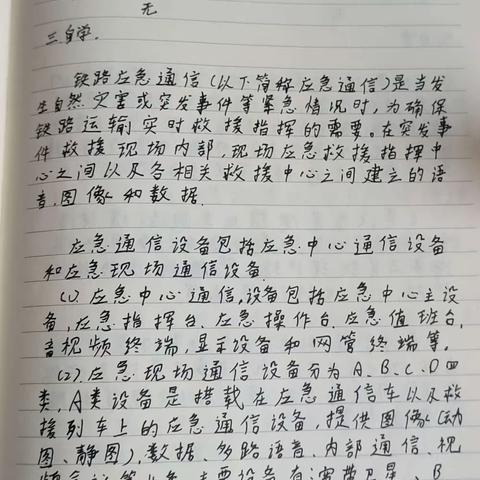 无
三.自学.
铁路应急通信(以下简称应急通信)是当发
生自然灾害或突发事件等紧急情况时,为确保
铁路运输实时救援指挥的需要。在突发事
件救援现场内部,现场应急救援指挥中
心之间以及各相关救援中心之间建立的语
音.图像和数据.
应急通信设备包括应急中心通信设备
和应急现场通信设备
(1).应急中心通信,设备包括应急中心主设
备,应急指挥台.应急操作台.应急值班台,
音视频终端,显示设备和网管终端等.
(2).应急现场通信设备分为A、B、C、D四
类,A类设备是搭载在应急通信车以及救
援列车上的应急通信设备,提供图像(动
图、静图),数据、多路语音、内部通信、视